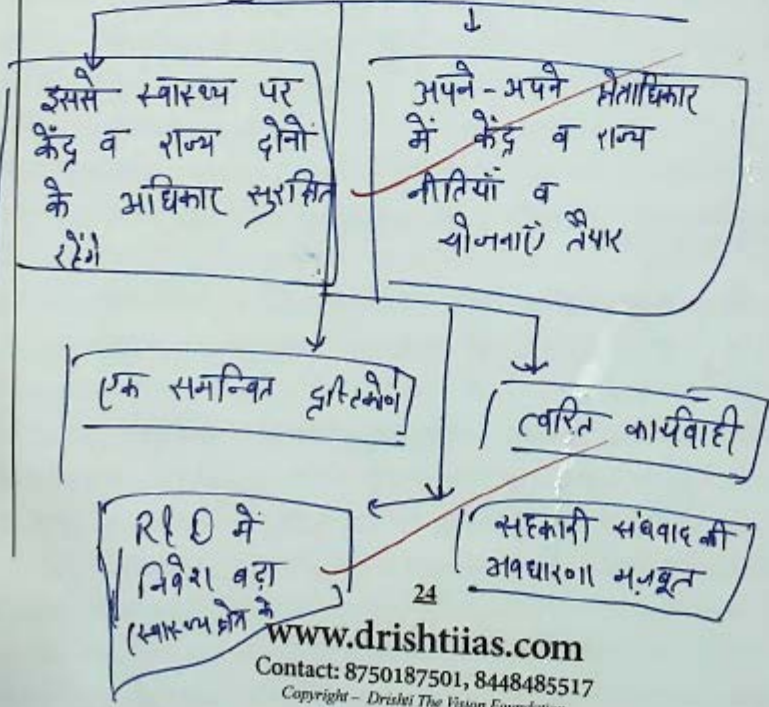 इससे स्वास्थ्य पर
केंद्र व राज्य दोनों
के अधिकार सुरक्षित
रहेंगे
अपने-अपने क्षेत्राधिकार
में केंद्र व राज्य
नीतियाँ व
योजनाएँ तैयार
एक समन्वित दृष्टिकोण
त्वरित कार्यवाही
R&D में
निवेश बढ़ा
(स्वास्थ्य क्षेत्र के
सहकारी संघवाद की
अवधारणा मज़बूत
24
www.drishtiias.com
Contact: 8750187501, 8448485517
Copyright – Drishti The Vision Foundation